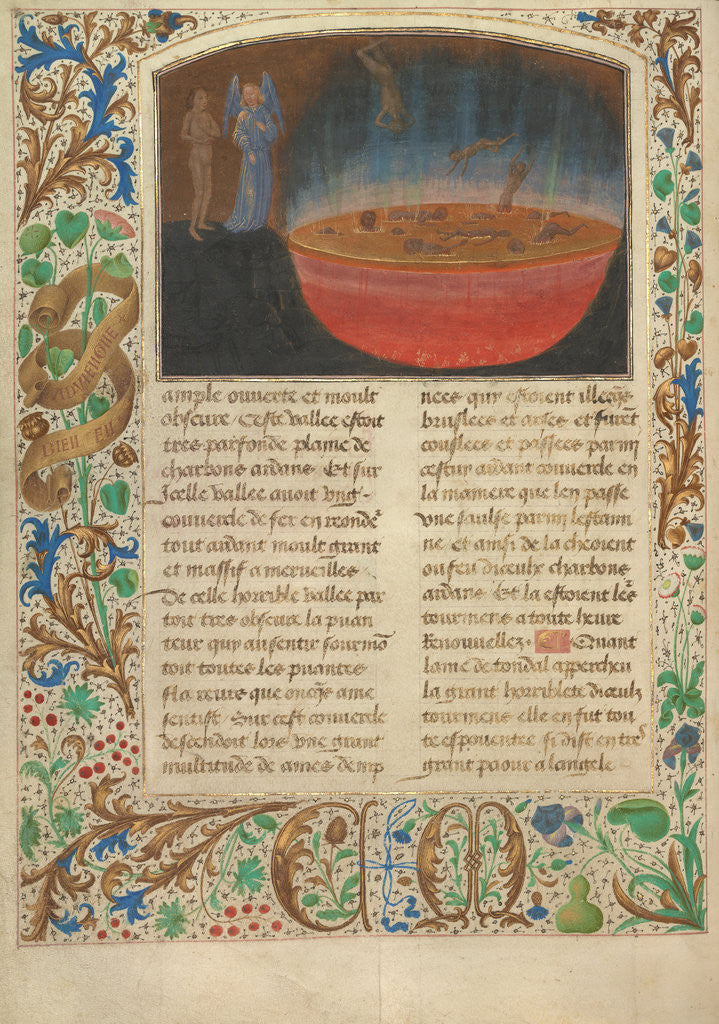 ample ouverte et moult
obscure / Ceste vallee estoit
tres parfonde plaine de
charbons ardans Et sur
Icelle vallee avoit vng
couvercle de fer en ronde
tout ardant moult grant
et massif a merveilles
De celle horrible vallee par
tout tres obscure la puan
teur quy au sentir
toit toutes les puantes
que oncqs ame
sentist / Sur cest couvercle
descendoit lors vne grant
multitude de ames damp
nees quy estoient illecqs
bruslees et arses et furēt
coulees et passees parmi
cestui ardant couvercle en
la maniere que len passe
vne saulse parmi lestami
ne et ainsi de la cheoient
ou feu diceulx charbons
ardans Et la estoient les
tourmens a toute heure
Renouvellez Quant
lame de tondal apperceu
la grant horriblete diceulz
tourmens elle en fut tou
te espouentee si dist en tres
grant paour a langele
BIEN EN
C M